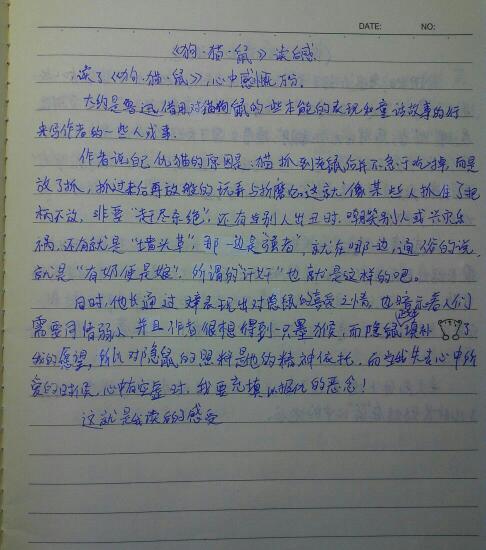 DATE: NO:
《狗·猫·鼠》读后感
读了《狗·猫·鼠》，心中感慨万分。
大约是鲁迅借用对猫狗鼠的一些本能的表现和童话故事的
来写作者的一些人或事。
作者说自己仇猫的原因是：猫抓到老鼠后并不急于吃掉，而是
放了抓，抓过来后再放的玩弄与折磨。这就像某些人抓住了把
柄不放，非要“赶尽杀绝”，还有当别人出丑时，嘲笑别人或兴灾乐
祸，还有就是“墙头草”，那一边是“强者”，就在哪一边，通俗的说，
就是“有奶便是娘”。所谓的“奸”也就是这样的吧。
同时，他也通过表现出对隐鼠的喜爱之情，也暗示着人们
需要同情弱小，并且作者很想得到一只墨猴，而隐鼠填补了
他的愿望，所以对隐鼠的照料是他的精神依托，而当我失去心中所
爱的时候，心中有空虚时，我要充填以报仇的恶念！
这就是我读后的感受